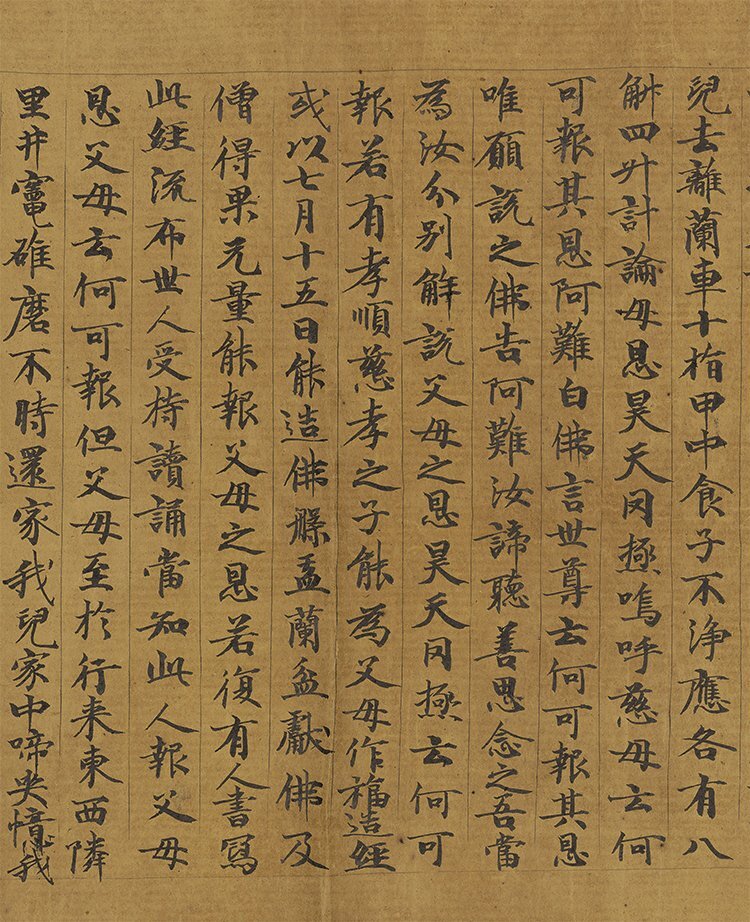 兒去離蘭車十指甲中食子不淨應各有八
斛四升計論母恩昊天罔極嗚呼慈母云何
可報其恩阿難白佛言世尊云何可報其恩
唯願說之佛告阿難汝諦聽善思念之吾當
為汝分別解說父母之恩昊天罔極云何可
報若有孝順慈孝之子能為父母作福造經
或以七月十五日能造佛槃盂蘭盆獻佛及
僧得果无量能報父母之恩若復有人書寫
此經流布世人受持讀誦當知此人報父母
恩父母云何可報但父母至於行来東西隣
里井竈碓磨不時還家我兒家中啼哭憶我